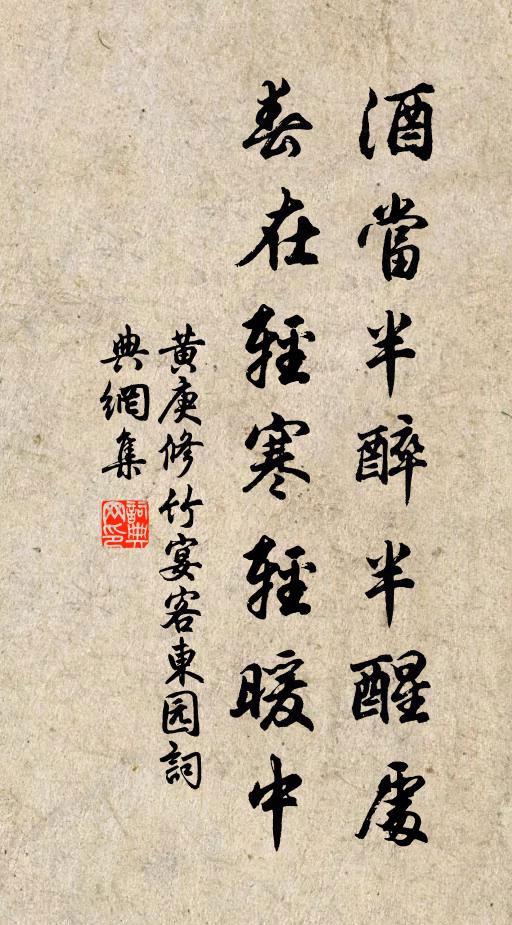 酒當半醉半醒處
春在輕寒輕暖中
黄庚修竹宴客東园詞
典網集
詞典
网印